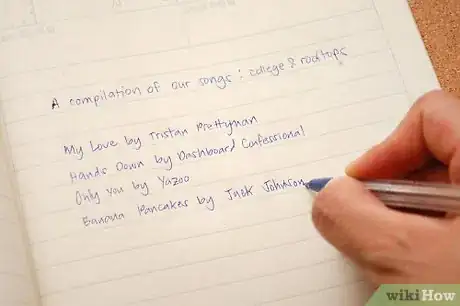 A compilation of our songs : college & rooftops
My Love by Tristan Prettyman
Hands Down by Dashboard Confessional
Only You by Yazoo
Banana Pancakes by Jack Johnson
wikiHow